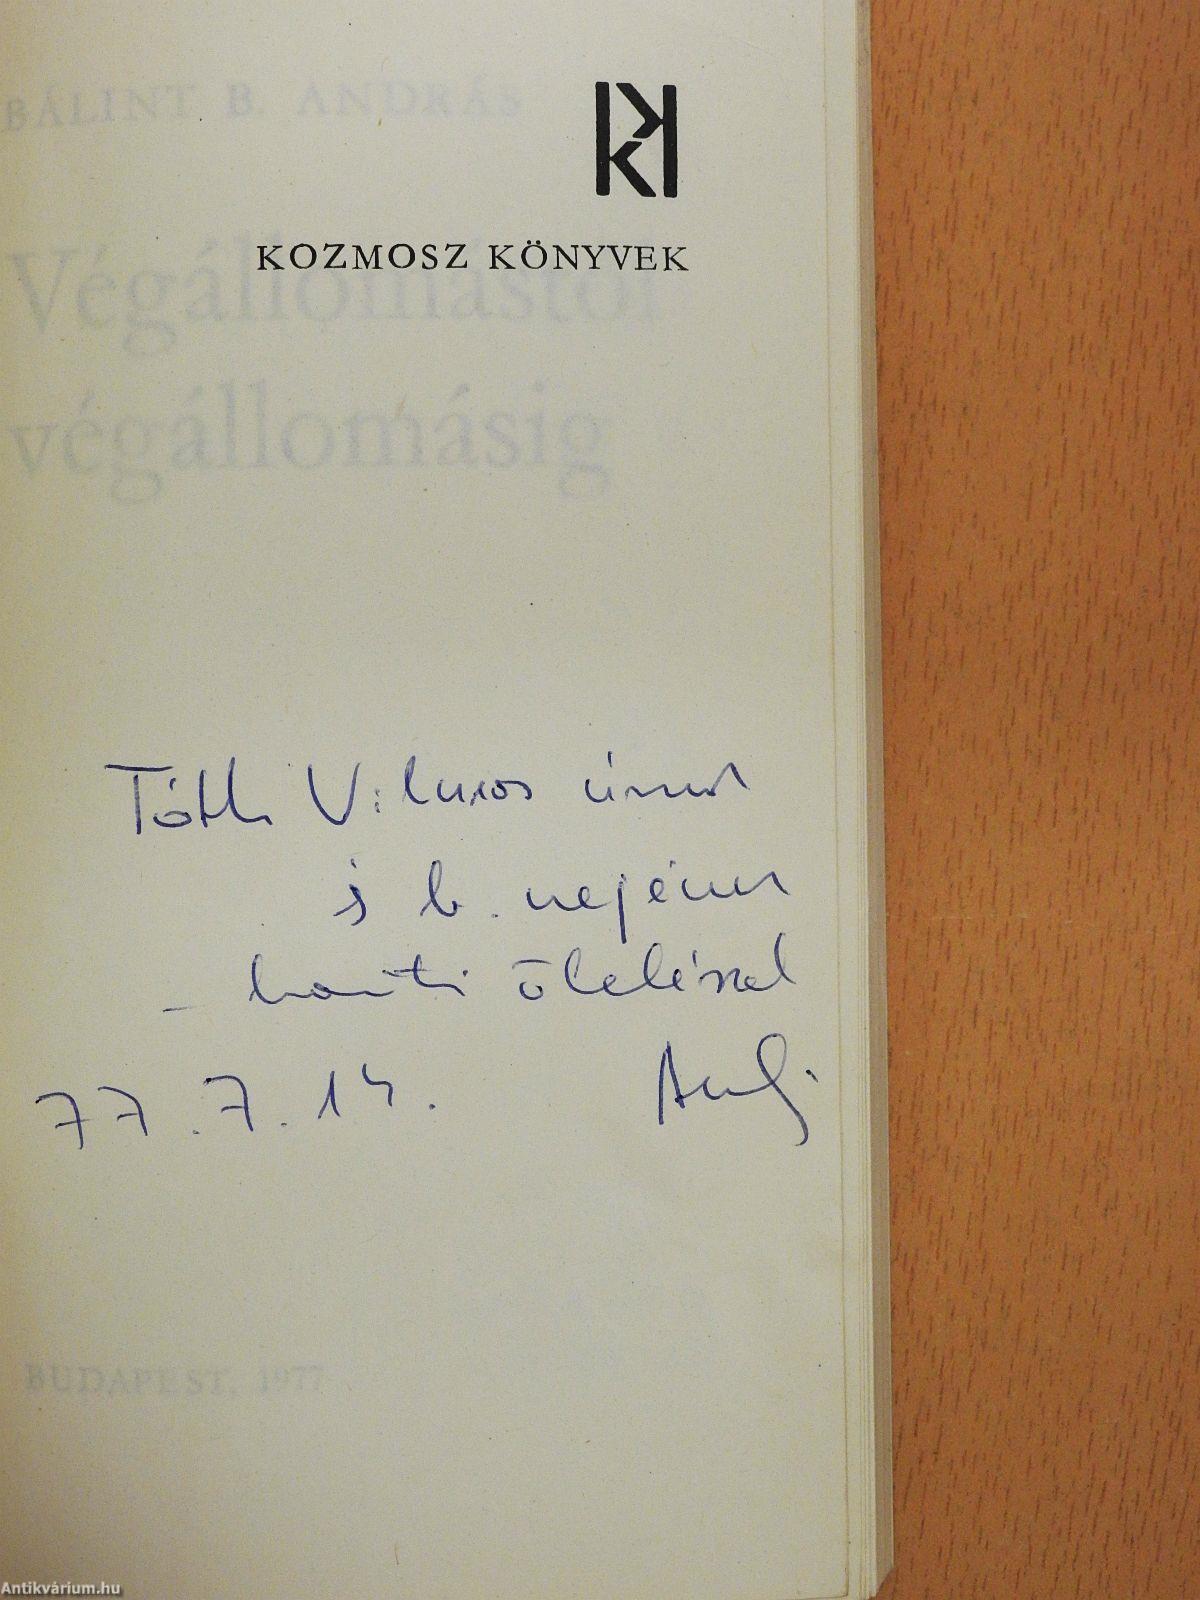 BÁLINT B. ANDRÁS
KOZMOSZ KÖNYVEK
Végállomástól
végállomásig
Tóth Vilmos úrnak
s b. nejének
– baráti öleléssel
77.7.14.
BUDAPEST, 1977
Antikvárium.hu